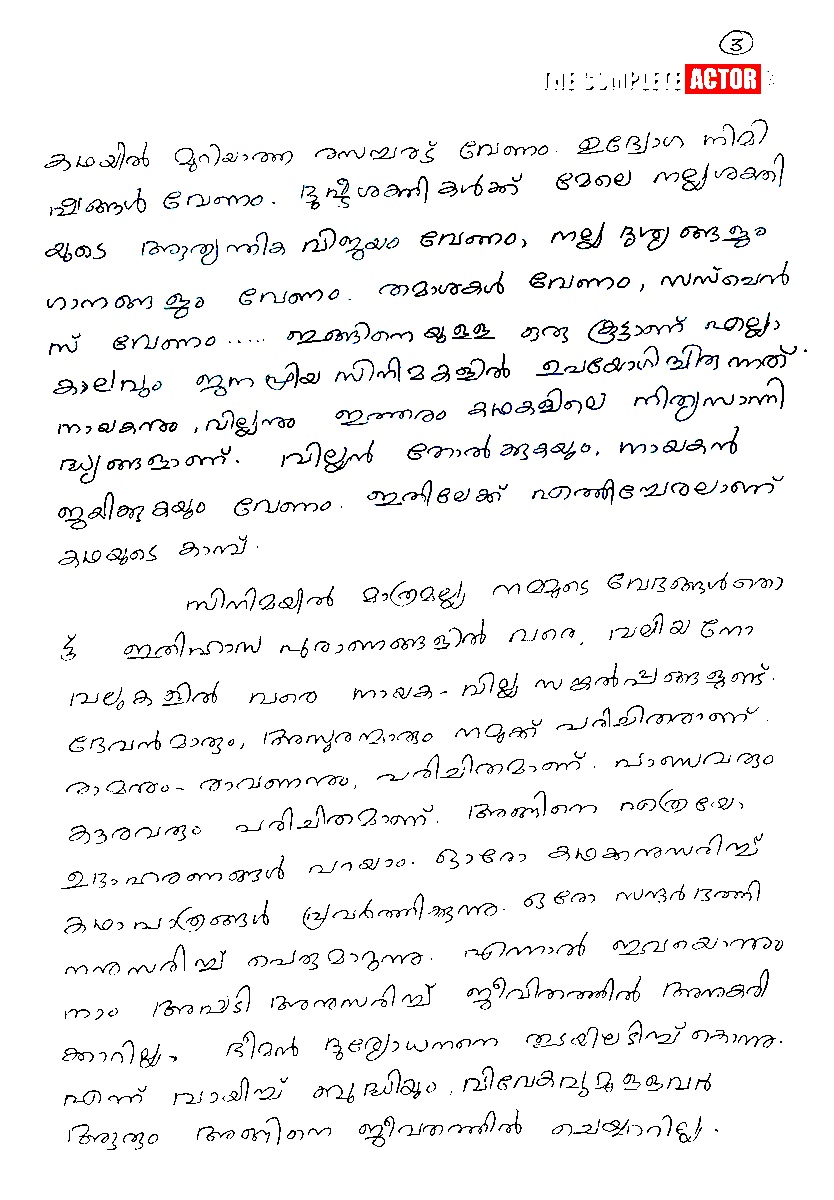 3
THE COMPLETE ACTOR
കഥയിൽ മുറിയാത്ത രസച്ചരട് വേണം. ഉദ്വേഗ നിമി
ഷങ്ങൾ വേണം. ദുഷ്ടശക്തികൾക്ക് മേലെ നല്ലശക്തി
യുടെ ആത്യന്തിക വിജയം വേണം, നല്ല ദൃശ്യങ്ങളും
ഗാനങ്ങളും വേണം. തമാശകൾ വേണം, സസ്പെൻ
സ് വേണം..... ഇങ്ങിനെയുള്ള ഒരു കൂട്ടാണ് എല്ലാ
കാലവും ജനപ്രിയ സിനിമകളിൽ ഉപയോഗിച്ചിരുന്നത്.
നായകനും, വില്ലനും ഇത്തരം കഥകളിലെ നിത്യസാന്നി
ദ്ധ്യങ്ങളാണ്. വില്ലൻ തോൽക്കുകയും, നായകൻ
ജയിക്കുകയും വേണം. ഇതിലേക്ക് എത്തിച്ചേരലാണ്
കഥയുടെ കാമ്പ്.
സിനിമയിൽ മാത്രമല്ല നമ്മുടെ വേദങ്ങൾതൊ
ട്ട് ഇതിഹാസ പുരാണങ്ങളിൽ വരെ, വലിയ നോ
വലുകളിൽ വരെ നായക-വില്ല സങ്കൽപ്പങ്ങളുണ്ട്.
ദേവൻമാരും, അസുരന്മാരും നമുക്ക് പരിചിതരാണ്.
രാമനും-രാവണനും, പരിചിതമാണ്. പാണ്ഡവരും
കൗരവരും പരിചിതമാണ്. അങ്ങിനെ എത്രയോ
ഉദാഹരണങ്ങൾ പറയാം. ഓരോ കഥക്കനുസരിച്ച്
കഥാപാത്രങ്ങൾ പ്രവർത്തിക്കുന്നു. ഒരോ സന്ദർഭത്തി
നനുസരിച്ച് പെരുമാറുന്നു. എന്നാൽ ഇവയൊന്നും
നാം അപ്പടി അനുസരിച്ച് ജീവിതത്തിൽ അനുകരി
ക്കാറില്ല, ഭീമൻ ദുര്യോധനനെ തുടയിലടിച്ച് കൊന്നു.
എന്ന് വായിച്ച് ബുദ്ധിയും, വിവേകവുമുള്ളവർ
ആരും അങ്ങിനെ ജീവതത്തിൽ ചെയ്യാറില്ല.